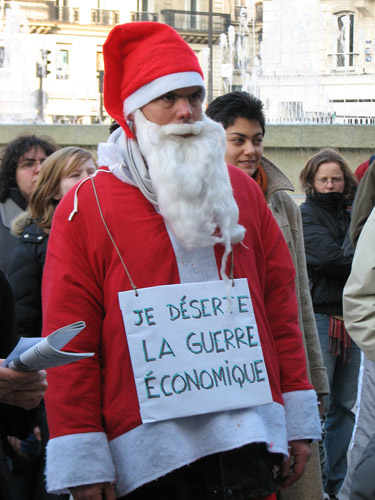 JE DÉSERTE
LA GUERRE
ÉCONOMIQUE